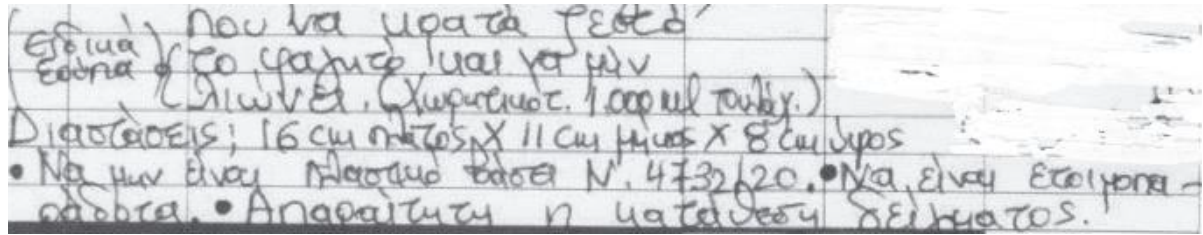 που να κρατά ζεστό
(Ειδικά το φαγητό και να μην
εσώτα λιώνει. (Χωρητικότ. 1.000 ml τουλάχ.)
Διαστάσεις; 16 cm πλάτος X 11 cm μήκος X 8 cm ύψος
• Να μην είναι πλαστικό βάσει Ν. 4732/20. • Να είναι ετοιμοπα-
ράδοτα. • Απαραίτητη η κατάθεση δείγματος.